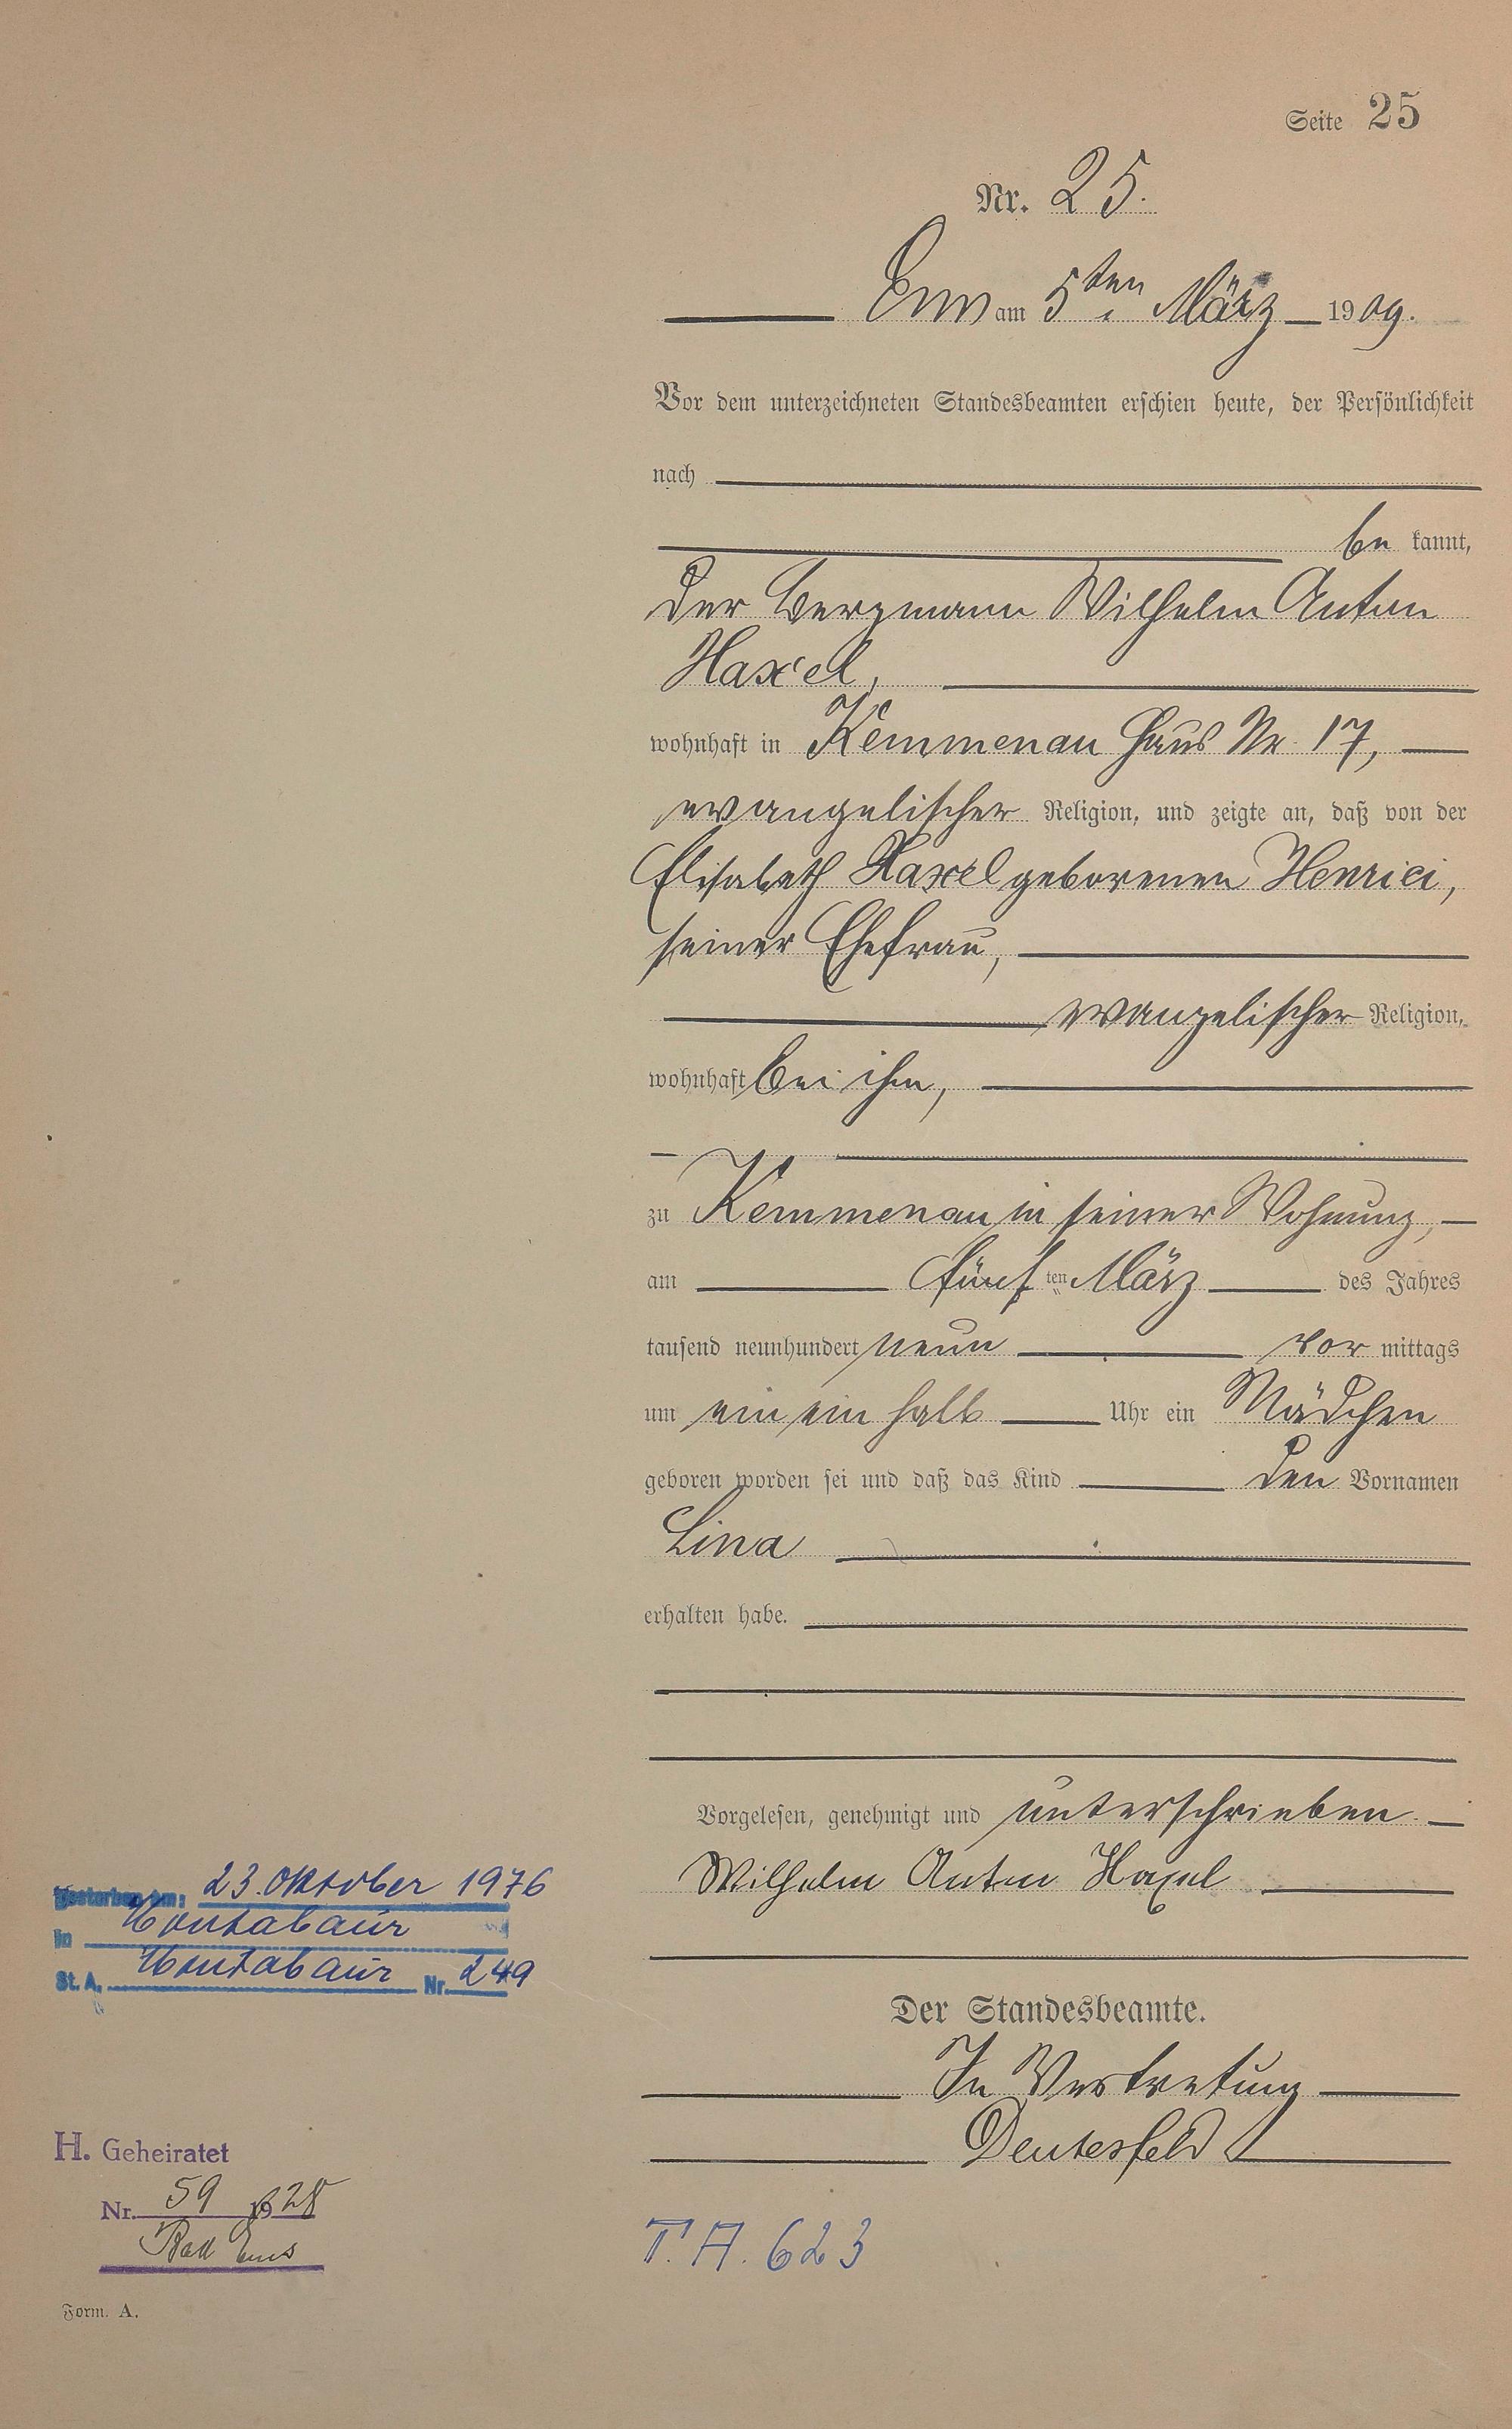 Seite 25
Nr. 25.
Ems am 5ten März 1909.
Vor dem unterzeichneten Standesbeamten erschien heute, der Persönlichkeit
nach
be kannt,
der Bergmann Wilhelm Anton
Haxel,
wohnhaft in Kemmenau Haus Nr. 17,
evangelischer Religion, und zeigte an, daß von der
Elisabeth Haxel geborenen Henrici,
seiner Ehefrau,
evangelischer Religion,
wohnhaft bei ihm,
zu Kemmenau in seiner Wohnung,
am fünf ten März des Jahres
tausend neunhundert neun vor mittags
um ein ein halb Uhr ein Mädchen
geboren worden sei und daß das Kind den Vornamen
Lina
erhalten habe.
Vorgelesen, genehmigt und unterschrieben
Wilhelm Anton Haxel
Der Standesbeamte.
In Vertretung
Deutesfeld
T. A. 623
Gestorben am: 23. Oktober 1976
in Montabaur
St. A. Montabaur Nr. 249
H. Geheiratet
Nr. 59 1928
Bad Ems
Form. A.